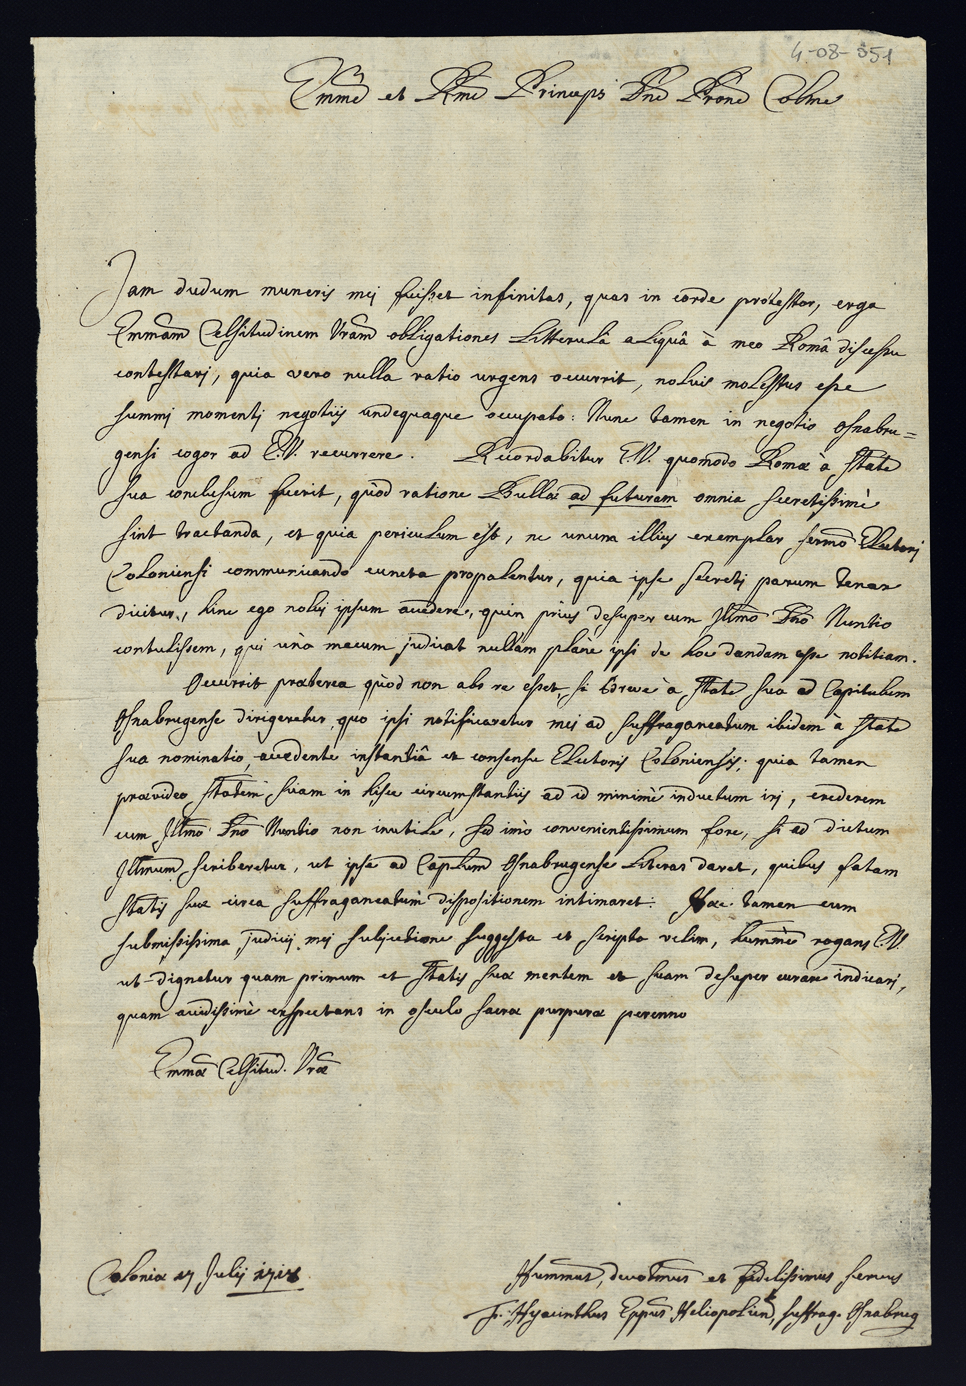 4-08-351
Emme et Rme Princeps Dne Drone Colme
Jam dudum muneris mei fuisset infinitas, quas in corde protestor, erga
Emmam Celsitudinem Vram obligationes litterulâ aliquâ à meo Româ discessu
contestari, quia vero nulla ratio urgens occurrit, nolui molestus esse
summi momenti negotiis undequaque occupato: Nunc tamen in negotio Osnabru=
gensi cogor ad E.V. recurrere. Recordabitur E.V. quomodo Romae à State
sua conclusum fuerit, quòd ratione Bullae ad futuram omnia secretissimè
sint tractanda, et quia periculum est, ne unum illius exemplar sermo Electori
Coloniensi communicando cuncta propalentur, quia ipse secreti parum tenax
dicitur, hinc ego nolui ipsum accedere, quin priùs desuper cum Illmo Dno Nuntio
contulissem, qui unà mecum judicat nullam planè ipsi de hoc dandam esse notitiam.
Occurrit praeterea quòd non abs re esset, si breve à State sua ad Capitulum
Osnabrugense dirigeretur quo ipsi notificaretur mei ad suffraganeatum ibidem à State
sua nominatio, accedente instantiâ et consensu Electoris Coloniensis; quia tamen
praevideo Statem suam in hisce circumstantiis ad id minimè inductum iri, crederem
cum Illmo Dno Nuntio non inutile, sed imò convenientissimum fore, si ad dictum
Illmum scriberetur, ut ipse ad Caplum Osnabrugense literas daret, quibus fatam
Statis suae circa suffraganeatum dispositionem intimaret: Haec tamen cum
submississima judicii mei subjectione suggesta et scripta velim, summè rogans E.V.
ut dignetur quam primum et Statis suae mentem et suam desuper curare indicari,
quam avidissimè exspectans in osculo sacrae purpurae perenno
Emmae Celsitud. Vrae
Coloniae 17 Julii 1718
Hummus, devotmus et fidelissimus servus
Fr. Hyacinthus Eppus Heliopolien, suffrag. Osnabrug